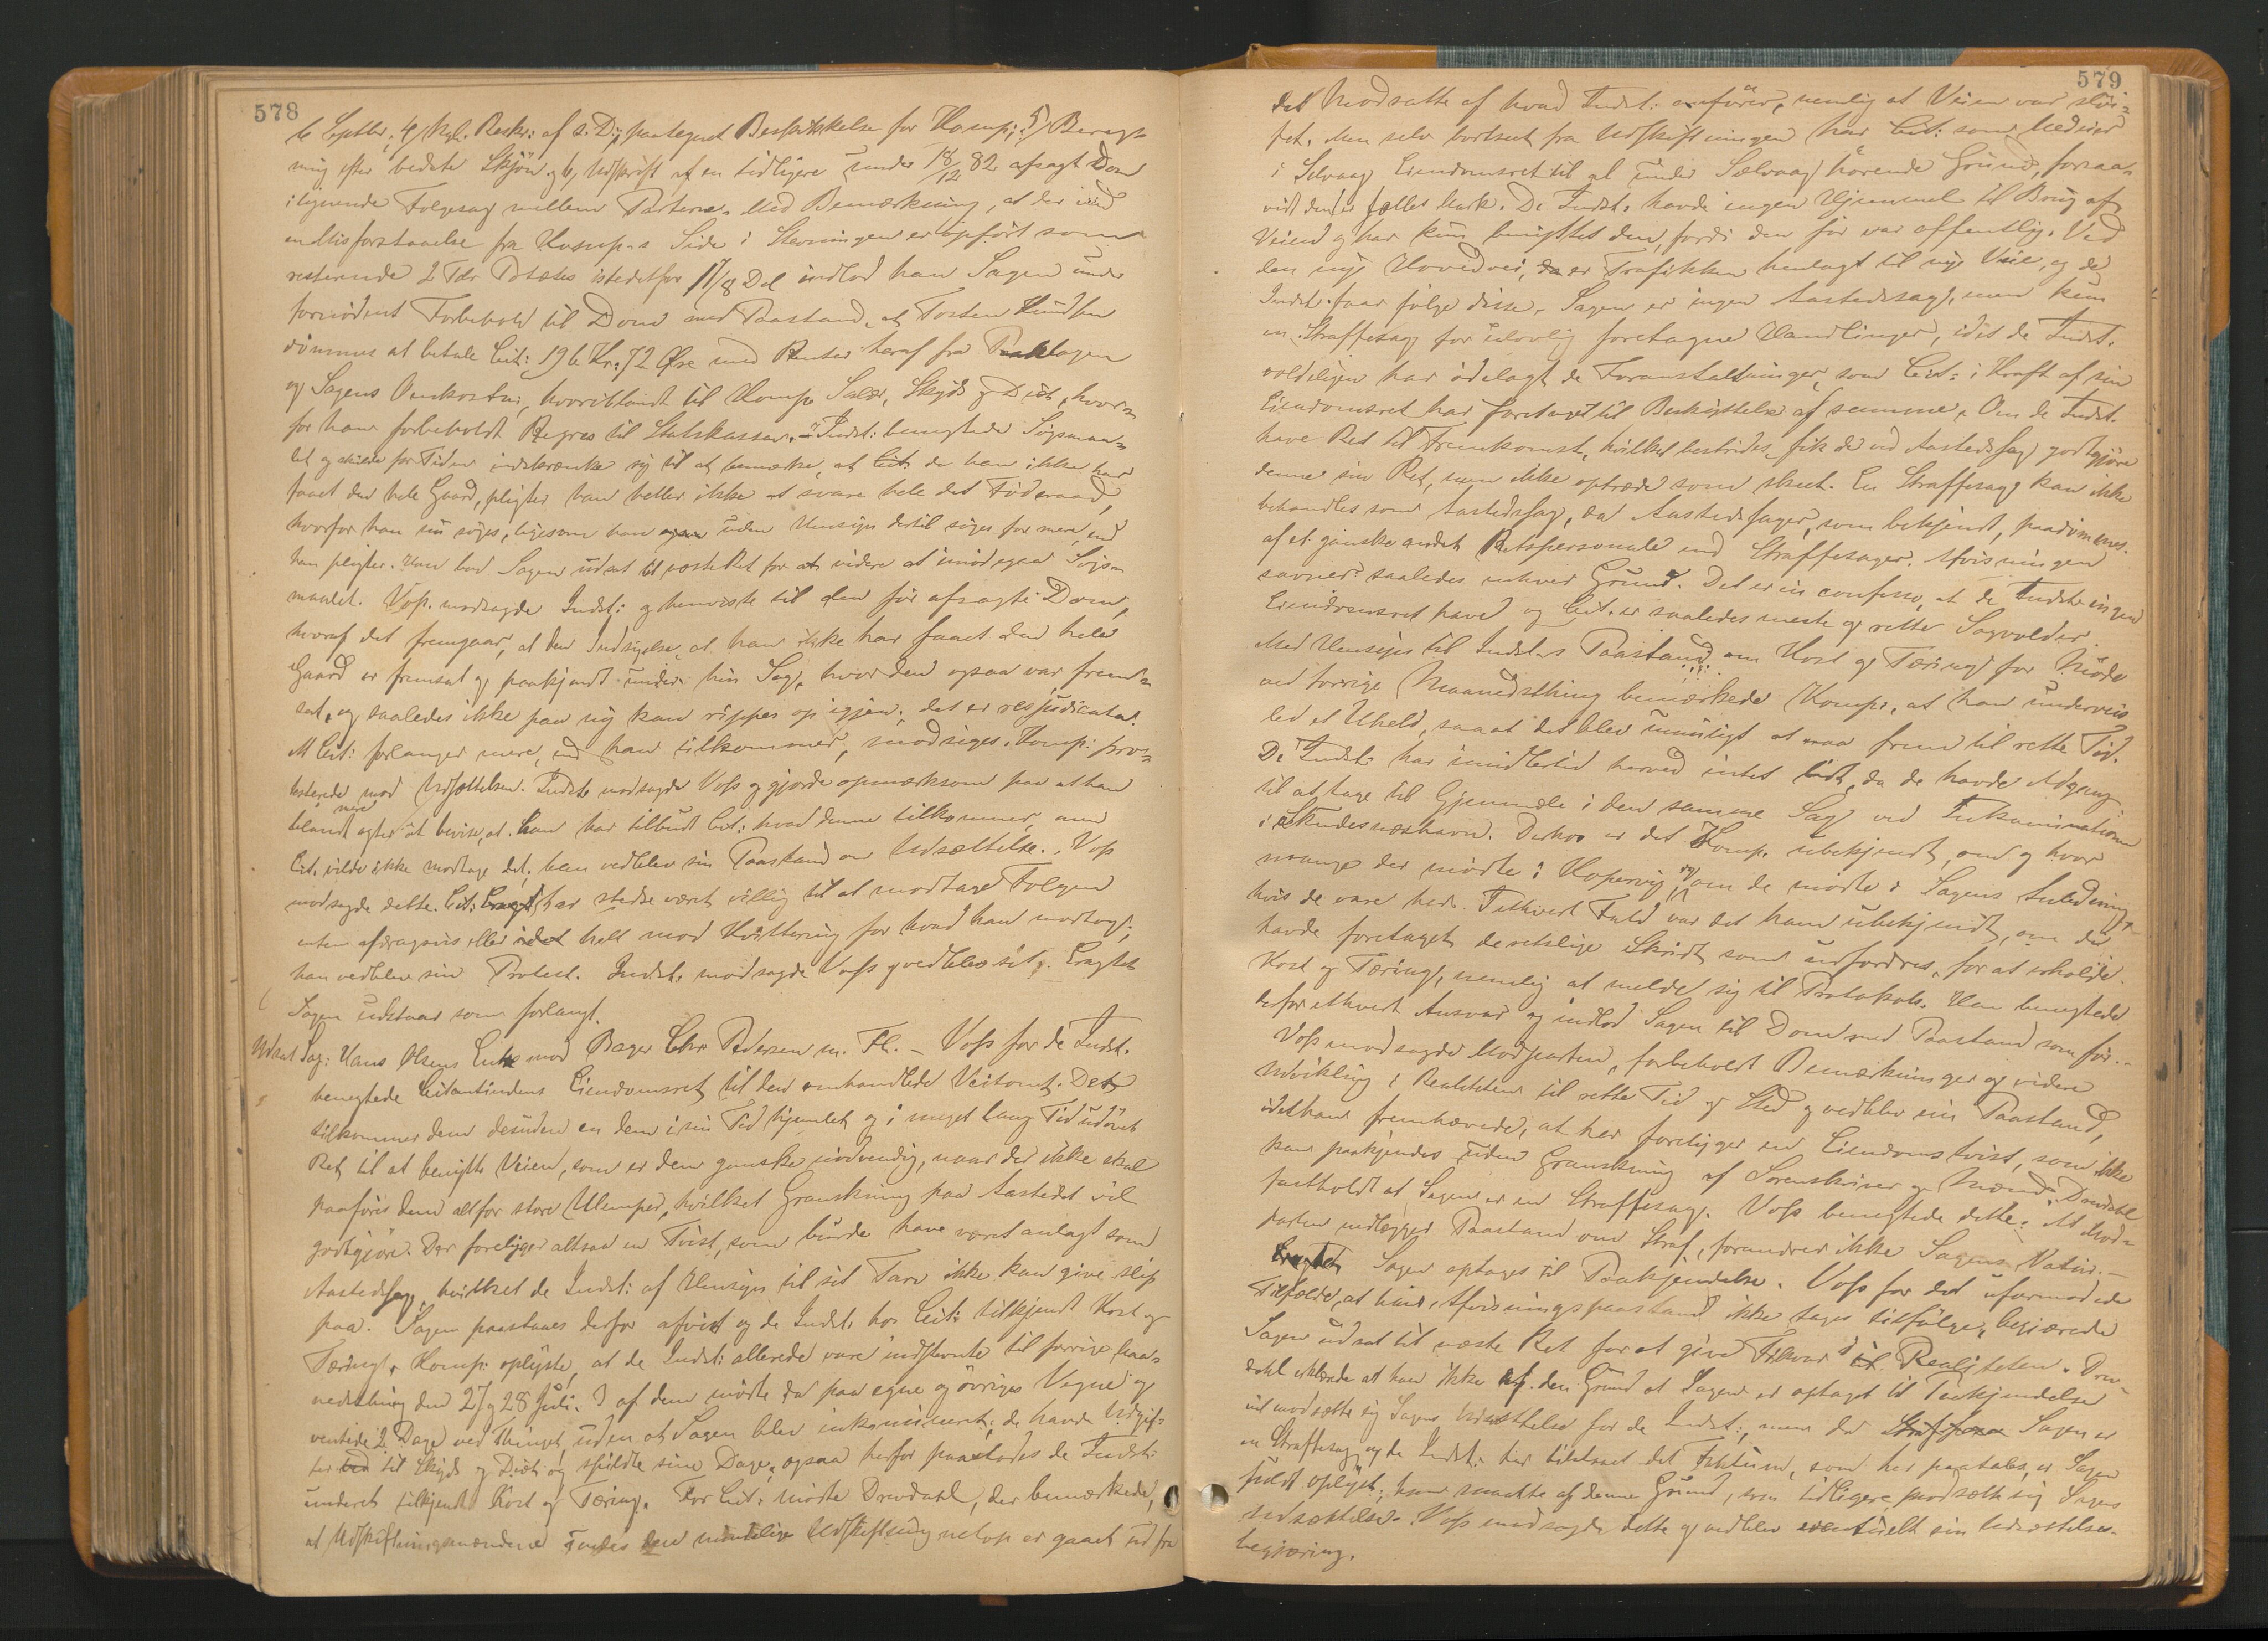 578
6 Septbr, 4/ Kgl. Reskr: af s. D., paategnet Beskikkelse for Komp: 5/ Bereg-
ning efter bedste Skjøn og 6, Udskrift af en tidligere under 18/12 82 afsagt Dom
i lignende Følgesag mellem Parterne. Med Bemærkning, at der ved
en Misforstaaelse fra Komp-s Side i Stevningen er opført som
resterende 2 Tdr Potetes istedetfor 1 7/8 Del indlod han Sagen under
fornødent Forbehold til Dom med Paastand, at Torsten Knudsen
dømmes at betale Cit: 196 Kr. 72 Øre med Renter heraf fra Paaklagen
og Sagens Omkostn:, hvoriblandt til Komp. Salær, Skyds & Diæt, hvor-
for han forbeholdt Regres til Statskassen. Indst: benegtede Søgsmaa-
let og skulde for Tiden indskrænke sig til at bemærke, at Cit, da han ikke har
faaet den hele Gaard, pligter han heller ikke at svare hele det Føderaad,
hvorfor han nu søges, ligesom han uden Hensyn dertil søges for mere, end
han pligter. Han bad Sagen udsat til næste Ret for at videre at imødegaa Søgs-
maalet. Voss. modsagde Indst: og henviste til den før afsagte Dom,
hvoraf det fremgaar, at den Indsigelse, at han ikke har faaet den hele
Gaard er fremsat og paakjendt under hin Sag, hvor den ogsaa var frem-
sat, og saaledes ikke paa ny kan rippes op igjen, det er res judicata.
At Cit: forlanger mere, end han tilkommer, modsiges. Komp: pro-
testerede mod Udsættelsen. Indst. modsagde Voss og gjorde opmærksom paa at han
blandt mere agter at bevise, at han har tilbudt Cit: hvad denne tilkommer, men
Cit. vilde ikke modtage det; han vedblev sin Paastand om Udsættelse. Voss
modsagde dette. Cit: har stedse været villig til at modtage Følgen
enten afdragsvis eller idet helt mod Kvittering for hvad han modtog;
han vedblev sin Protest. Indst. modsagde Voss & vedblev sit. Eragtet
Sagen udstaar som forlangt.
Udsat Sag: Hans Olsens Enke mod Bager Chr Pedersen m. Fl. – Voss for de Indst.
benegtede Citantindens Eiendomsret til den omhandlede Veitomt. Det
tilkommer dem desuden en dem i sin Tid hjemlet og i meget lang Tid udøvet
Ret til at benytte Veien, som er dem ganske nødvendig, naar der ikke skal
paaføres dem altfor store Ulemper, hvilket Granskning paa Aastedet vil
godtgjøre. Der foreligger altsaa en Tvist, som burde have været anlagt som
Aastedssag, hvilket de Indst: af Hensyn til sit Tarv ikke kan give slip
paa. Sagen paastaaes derfor afvist og de Indst. hos Cit: tilkjendt Kost og
Tæring. Komp: oplyste, at de Indst: allerede vare indstevnte til forrige Maa-
nedsthing den 27 & 28 Juli. 3 af dem mødte da paa egne og øvriges Vegne og
ventede 2 Dage ved Thinget, uden at Sagen blev inkamineret; de havde Udgif-
ter til Skyds og Diæt og spildte sine Dage; ogsaa herfor paastodes de Indst:
underet tilkjendt Kost og Tæring. For Cit: mødte Drevdahl, der bemærkede,
at Udskiftningsmændene under den Udskiftning netop er gaaet ud fra
579
det Modsatte af hvad Indst: anfører, nemlig at Veien var sløi-
fet. Men selv bortseet fra Udskiftningen har Cit: som Medeier
i Selvaag Eiendomsret til al under Sælvaag hørende Grund, forsaa-
vidt den er fælles Mark. De Indst. havde ingen Hjemmel til Brug af
Veien & har kun benyttet den, fordi den før var offentlig. Ved
den nye Hovedvei, er Trafikken henlagt til nye Veie, og de
Indst. faar følge disse. Sagen er ingen Aastedssag, men kun
en Straffesag for ulovlig foretagne Handlinger, idet de Indst.
voldeligen har ødelagt de Foranstaltninger, som Cit: i Kraft af sin
Eiendomsret har foretaget til Beskyttelse af samme. Om de Indst.
have Ret til Fremkomst, hvilket bestrides, fik de ved Aastedssag godtgjøre
denne sin Ret, men ikke optræde som skeet. En Straffesag kan ikke
behandles som Aastedssag, da Aastedssager, som bekjendt, paadømmes
af et ganske andet Retspersonale end Straffesager. Afvisningen
savner saaledes enhver Grund. Det er in confesso, at de Indst: ingen
Eiendomsret have og Cit. er saaledes meste og rette Sagvolder.
Med Hensyn til Indst.s Paastand om Kost og Tæring for Møde
ved forrige Maanedsthing bemærkede Komp:, at han underveis
led et Uheld, saaat det blev umuligt at naa frem til rette Tid.
De Indst: har imidlertid herved intet lidt, da de havde Adgang
til at tage til Gjenmæle i den samme Sag ved Inkaminationen
i Skudesneshavn. Derhos er det Komp. ubekjendt, om og hvor
mange der mødte i Kopervig og om de mødte i Sagens Anledning,
hvis de vare her. Iethvert Fald var det ham ubekjendt, om de
havde foretaget de retslige Skridt som udfordres, for at erholde
Kost og Tæring, nemlig at melde sig til Protokols. Han benegtede
derfor ethvert Ansvar og indlod Sagen til Dom med Paastand som før. –
Voss modsagde Modparten, forbeholdt Bemærkninger og videre
Udvikling i Realiteten til rette Tid & Sted og vedblev sin Paastand,
idet han fremhævede, at her foreligger en Eiendomstvist, som ikke
kan paakjendes uden Granskning af Sorenskriver og Mænd. Drevdahl
fastholdt at Sagen er en Straffesag. Voss benegtede dette. At Mod-
parten nedlægger Paastand om Straf, forandrer ikke Sagens Natur. –
Eragtet Sagen optages til Paakjendelse. Voss for det uformodede
Tilfælde, at hans Afvisningspaastand ikke tages tilfølge, begjærede
Sagen udsat til næste Ret for at give Tilsvar i Realiteten. Drev-
dahl erklærede at han ikke af den Grund at Sagen er optaget til Paakjendelse
vil modsætte sig Sagens Udsættelse for de Indst:, men da Sagen er
en Straffesag, og de Indst. har tilstaaet det Faktum, som her paatales, er Sagen
fuldt oplyst; han maatte af denne Grund, som tidligere modsætte sig Sagens
Udsættelse. Voss modsagde dette og vedblev eventuelt sin Udsættelses-
begjæring.